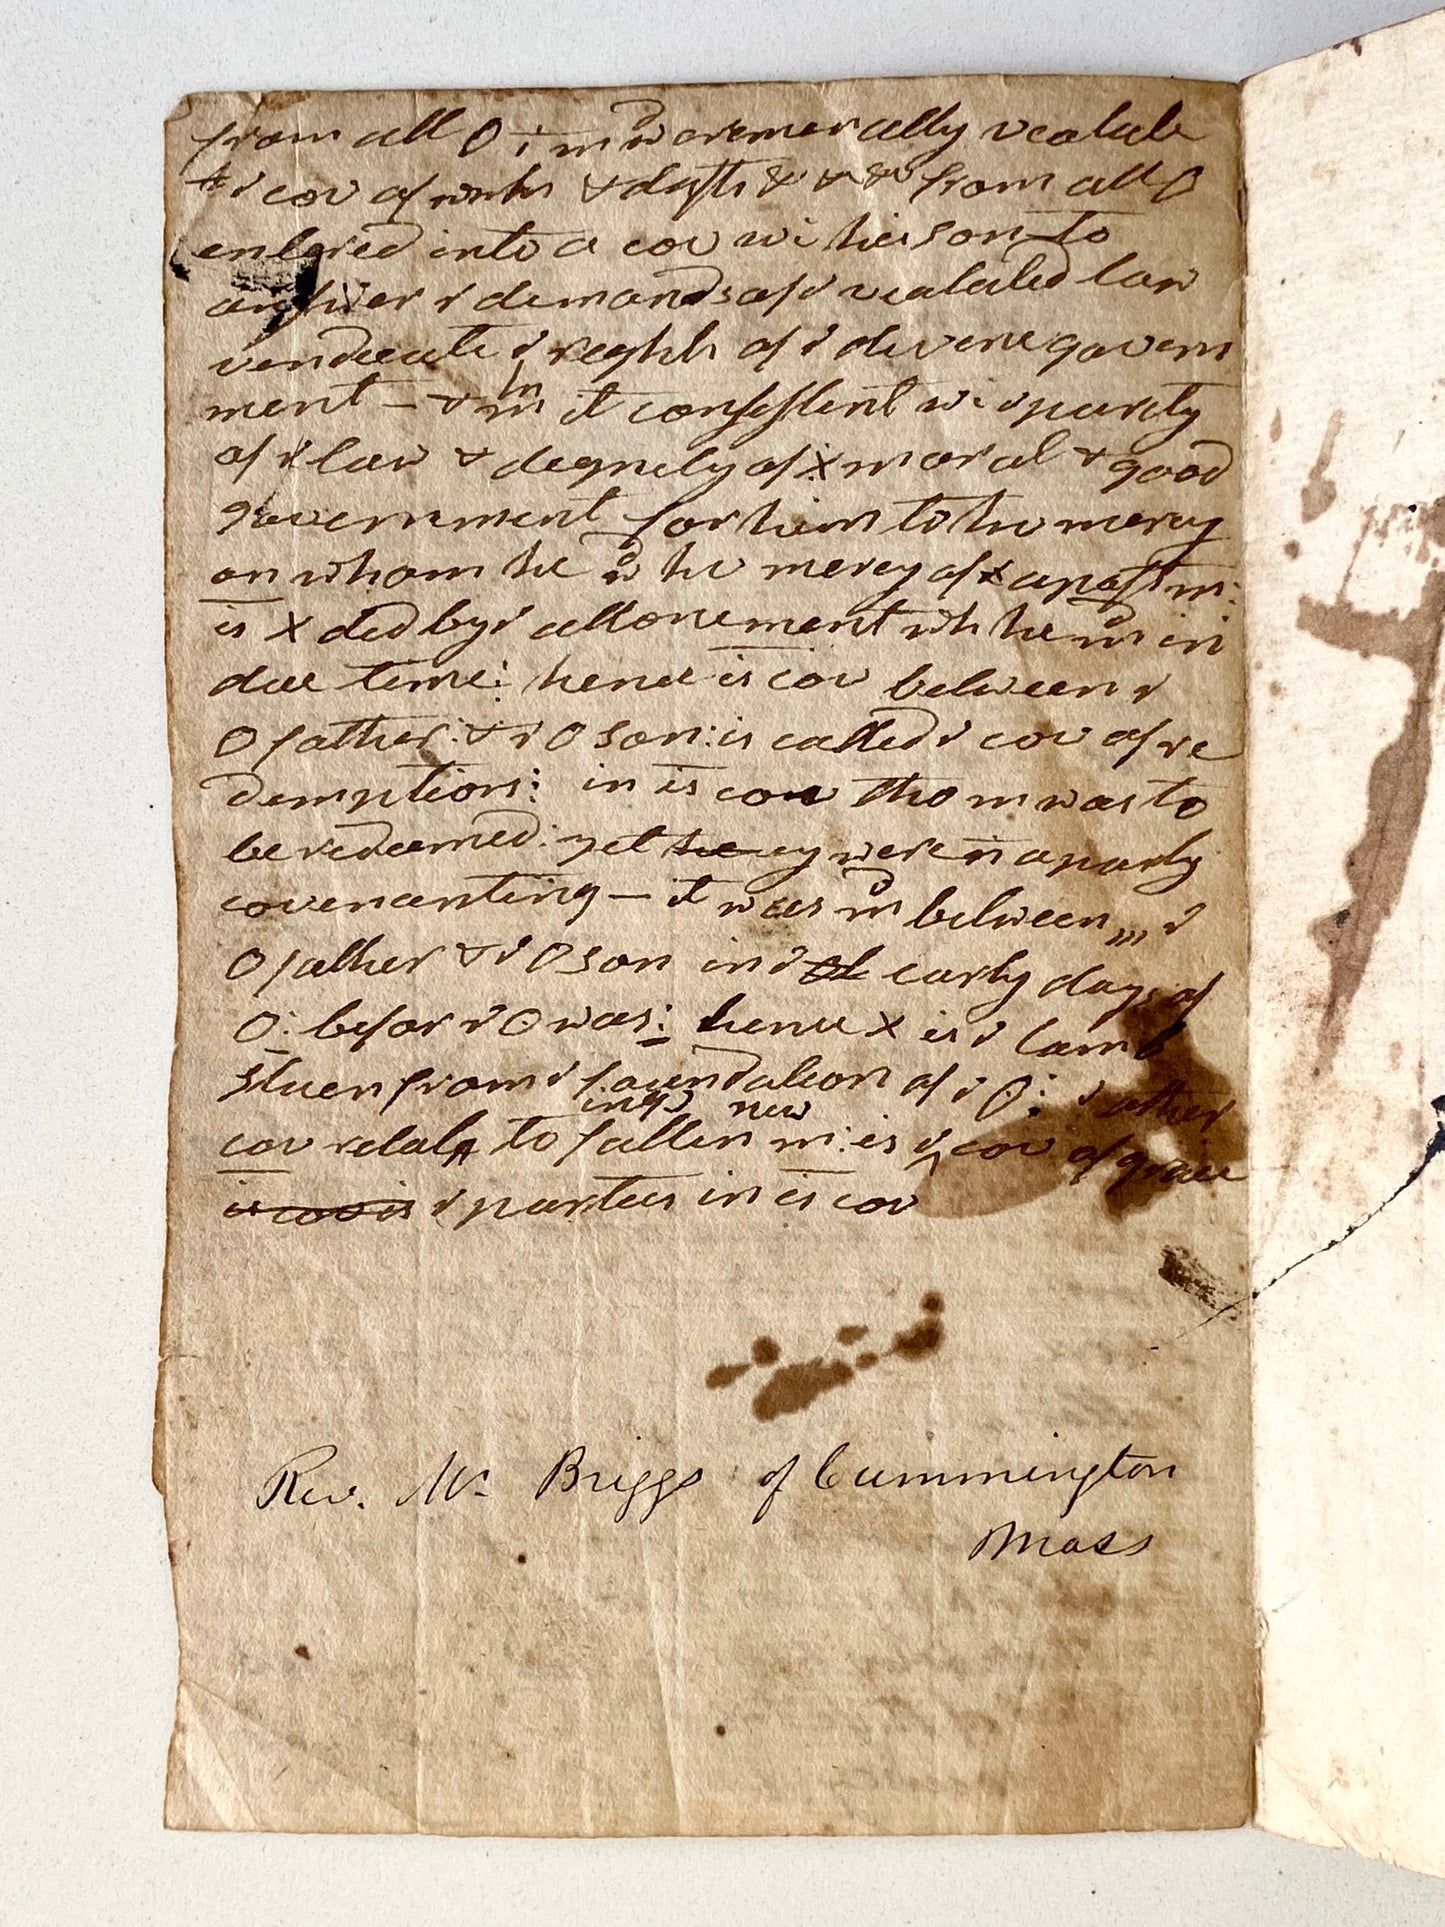 from all O i m w oremorally vealate
& i cov of works & dyth & & & from all O
entered into a cov wi hie son to
answer i demands of i vealated law
vendecate i reghts of i devine govern
ment — & m it consestent wi i purety
of i law & degnety of x moral & good
government for him to he mercy
on whom he w he mercy of x apost m:
is x ded by i attonement wh he m in
due time: hence is cov between i
O father: & i O son: is called i cov of re
demption: in is cov tho m was to
be redeemed: yet they were n a party
covenanting — it was m between i
O father & i O son in i early days of
O: befor i O was: hence x is i lamb
slaen from i foundation of i O: i other
ing new
cov relat to fallen m: is i cov of grace
is cov is i partees in is cov
Rev. Mr. Briggs of Cummington
Mass